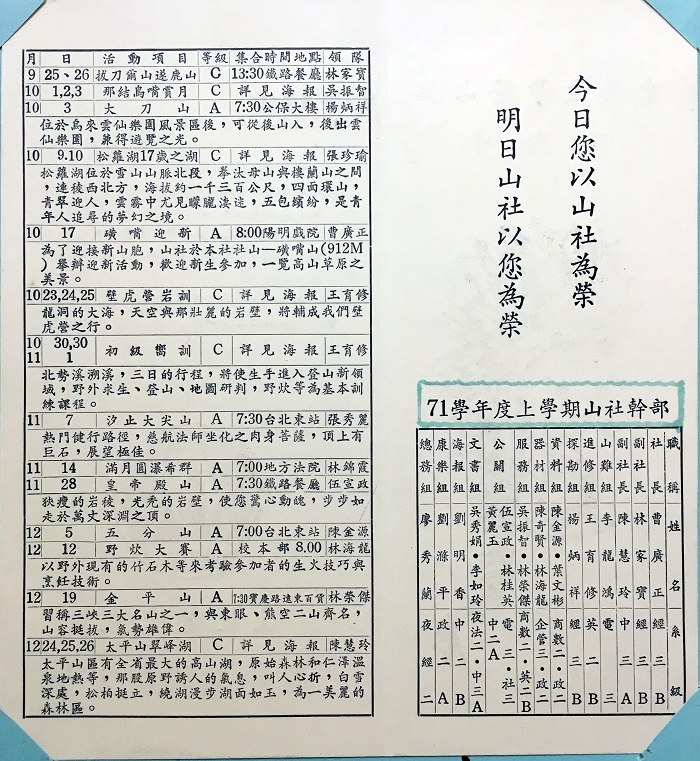 月 日 活動項目 等級 集合時間地點 領隊
9 25、26 拔刀爾山逐鹿山 C 13:30鐵路餐廳 林家寶
10 1,2,3 那結島嘴賞月 C 詳見海報 吳振智
10 3 大刀山 A 7:30公保大樓 楊炳祥
位於烏來雲仙樂園風景區後，可從後山入，後出雲
仙樂園，兼得遊覽之光。
10 9.10 松蘿湖17歲之湖 C 詳見海報 張珍瑜
松蘿湖位於雪山山脈北段，拳汝母山與樓蘭山之間
，連稜西北方，海拔約一千三百公尺，四面環山，
青翠迎人，雲霧中尤見矇朧淒迷，五包繽紛，是青
年人追尋的夢幻之境。
10 17 磺嘴迎新 A 8:00陽明戲院 曹廣正
為了迎接新山胞，山社於本社社山—磺嘴山(912M
）舉辦迎新活動，歡迎新生參加，一覽高山草原之
美景。
10 23,24,25 壁虎營岩訓 C 詳見海報 王育修
龍洞的大海，天空與那壯麗的岩壁，將輔成我們壁
虎營之行。
10 30,30
11 1 初級嚮訓 C 詳見海報 王育修
北勢溪溯溪，三日的行程，將使生手進入登山新領
域，野外求生、登山、地圖研判，野炊等為基本訓
練課程。
11 7 汐止大尖山 A 7:30台北東站 張秀麗
熱門健行路徑，慈航法師坐化之肉身菩薩，頂上有
巨石，展望極佳。
11 14 滿月圓瀑希群 A 7:00地方法院 林錦霞
11 28 皇帝殿山 A 7:30鐵路餐廳 伍宣政
狹瘦的岩後，光禿的岩壁，使您驚心動魄，步步如
走於萬丈深淵之頂。
12 5 五分山 A 7:00台北東站 陳金源
12 12 野炊大賽 A 校本部8.00 林海龍
以野外現有的竹石木等來考驗參加者的生火技巧與
烹飪技術。
12 19 金平山 A 7:30寶慶路遠東百貨 林榮傑
習稱三峽三大名山之一，與東眼、熊空二山齊名，
山容挺拔，氣勢雄偉。
12 24,25,26 太平山翠峰湖 C 詳見海報 陳慧玲
太平山區有全省最大的高山湖，原始森林和仁澤溫
泉地熱等，那股原野誘人的氣息，叫人心折，白雪
深處，松柏挺立，繞湖漫步湖面如玉，為一美麗的
森林區。
今日您以山社為榮
明日山社以您為榮
71學年度上學期山社幹部
職稱 姓名 系級
社長 曹廣正 經三B
副社長 林家寶 經三B
副社長 陳慧玲 中三A
山難組 李龍鴻 電三
進修組 王育修 英二B
探勘組 楊炳祥 經三B
資料組 陳金源・葉文彬 商數二・政二
器材組 陳奇賢・林海龍 企管三・政二
服務組 吳振智・林榮傑 商數二・英二B
公關組 伍宣政・林桂英 電三・社三
黃麗玉 中二A
文書組 吳秀娟・李如玲 夜法二・中三A
海報組 劉明香 中二B
康樂組 劉滌平 政二A
總務組 廖秀蘭 夜經二